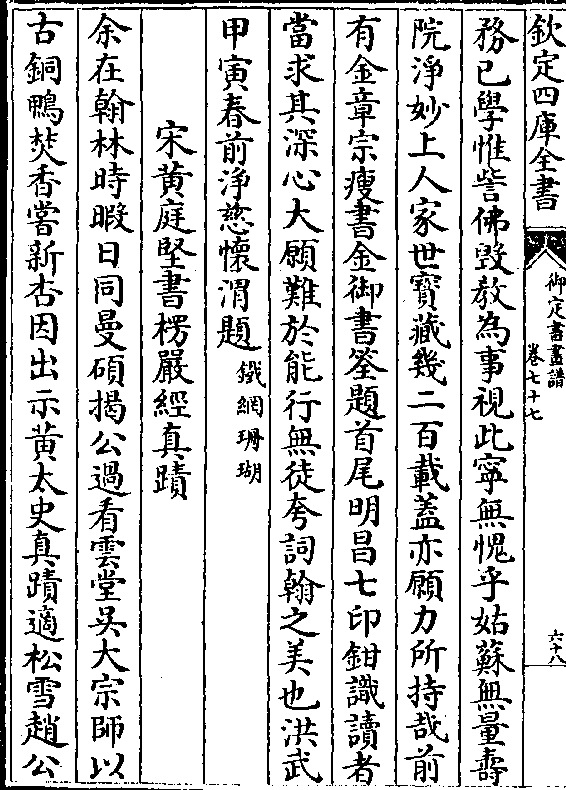 欽定四庫全書
御定書畫譜
卷七十七
六十八
務已學惟訾佛毀教為事視此寧無愧乎姑蘇無量壽
院淨妙上人家世寶藏幾二百載蓋亦願力所持哉前
有金章宗瘦書金御書筌題首尾明昌七印鉗識讀者
當求其深心大願難於能行無徒夸詞翰之美也洪武
甲寅春前淨慈懷渭題鐵網珊瑚
宋黄庭堅書楞嚴經真蹟
余在翰林時暇日同曼碩揭公過看雲堂吳大宗師以
古銅鴨焚香嘗新杏因出示黄太史真蹟適松雪趙公